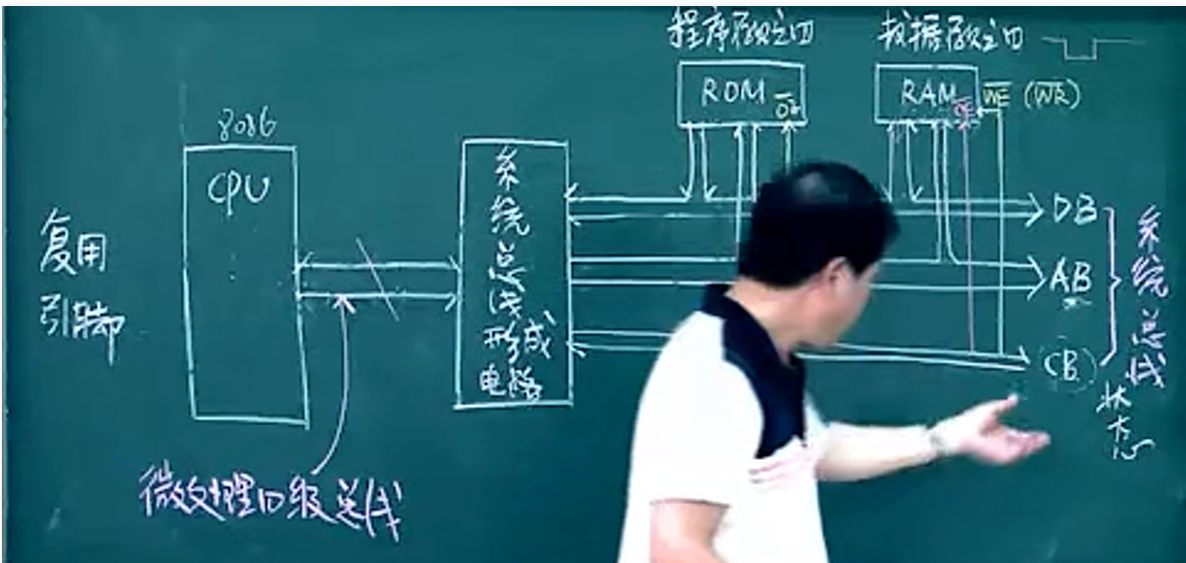 程序存贮四
数据存贮四
ROM
OE
RAM
OE
WE (WR)
8086
CPU
复用
引脚
系统总线形成
电路
DB
AB
CB
系统总线
状态
微处理四级总线